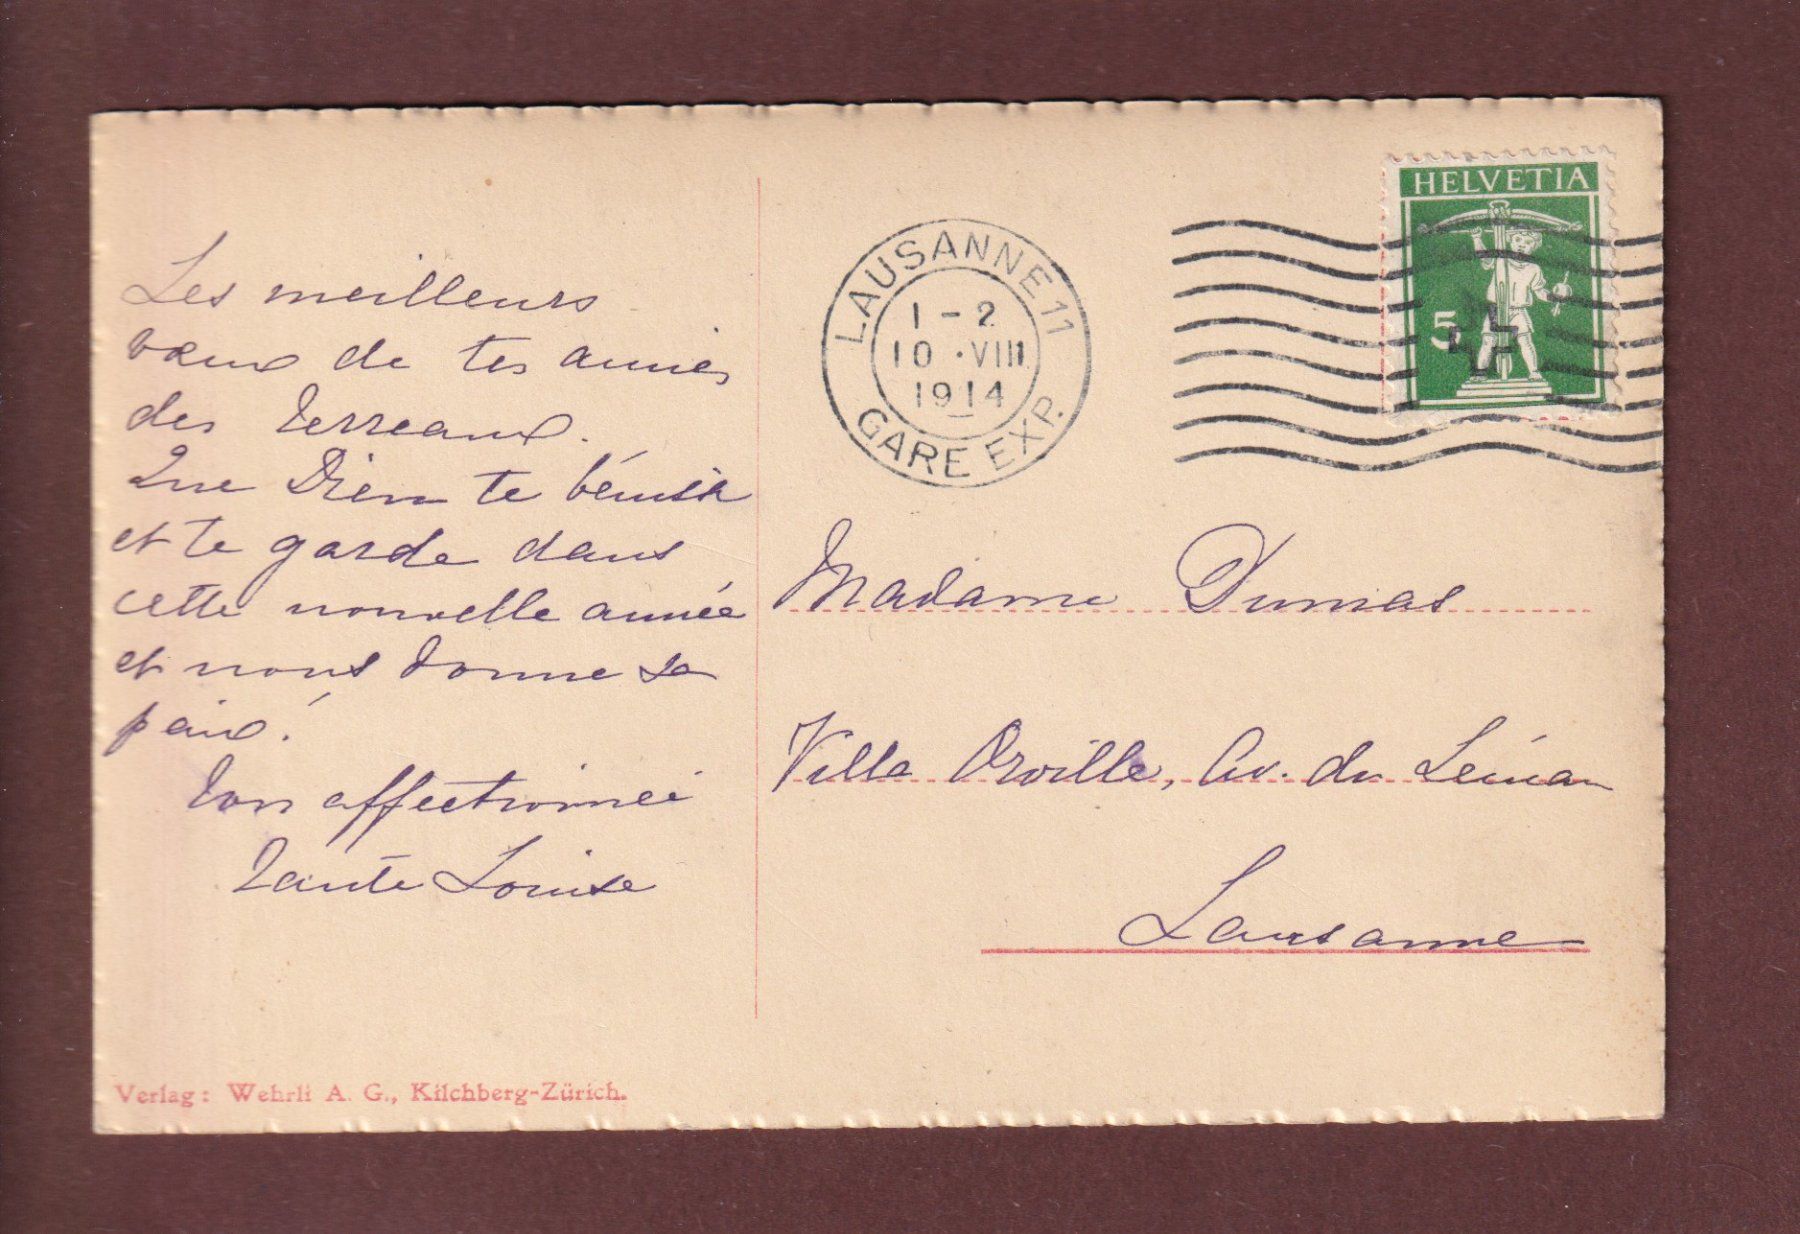 Les meilleurs
vœux de tes amies
des Terreaux.
Que Dieu te bénisse
et te garde dans
cette nouvelle année
et nous donne sa
paix!
Ton affectionnée
Tante Louise
Verlag: Wehrli A. G., Kilchberg-Zürich.
LAUSANNE 11
1 - 2
10 · VIII
1914
GARE EXP.
HELVETIA
5
Madame Dumas
Villa Orville, Av. du Léman
Lausanne